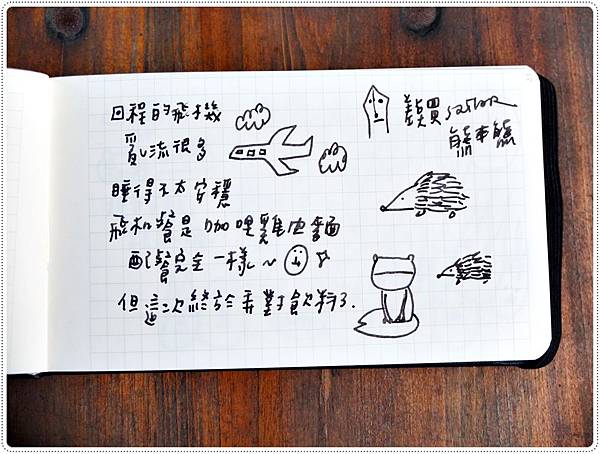 回程的飛機
亂流很多
睡得不太安穩
飛機餐是咖哩雞肉麵
配餐完全一樣~
但這次終於弄對飲料了.
義賣 sailor
熊本熊